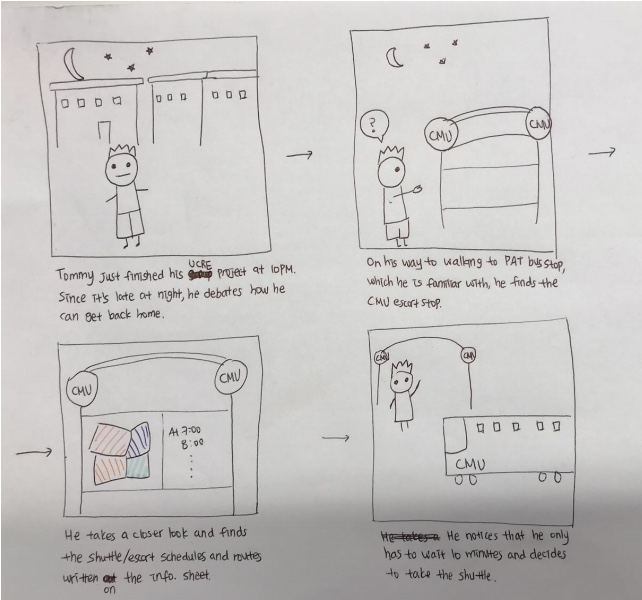 Tommy just finished his UCRE project at 10PM.
Since it's late at night, he debates how he
can get back home.
?
CMU CMU
On his way to walking to PAT bus stop,
which he is familiar with, he finds the
CMU escort stop.
CMU CMU
A 7:00
B :00
He takes a closer look and finds
the shuttle/escort schedules and routes
written on the info. sheet.
CMU CMU
CMU
He takes a He notices that he only
has to wait 10 minutes and decides
to take the shuttle.